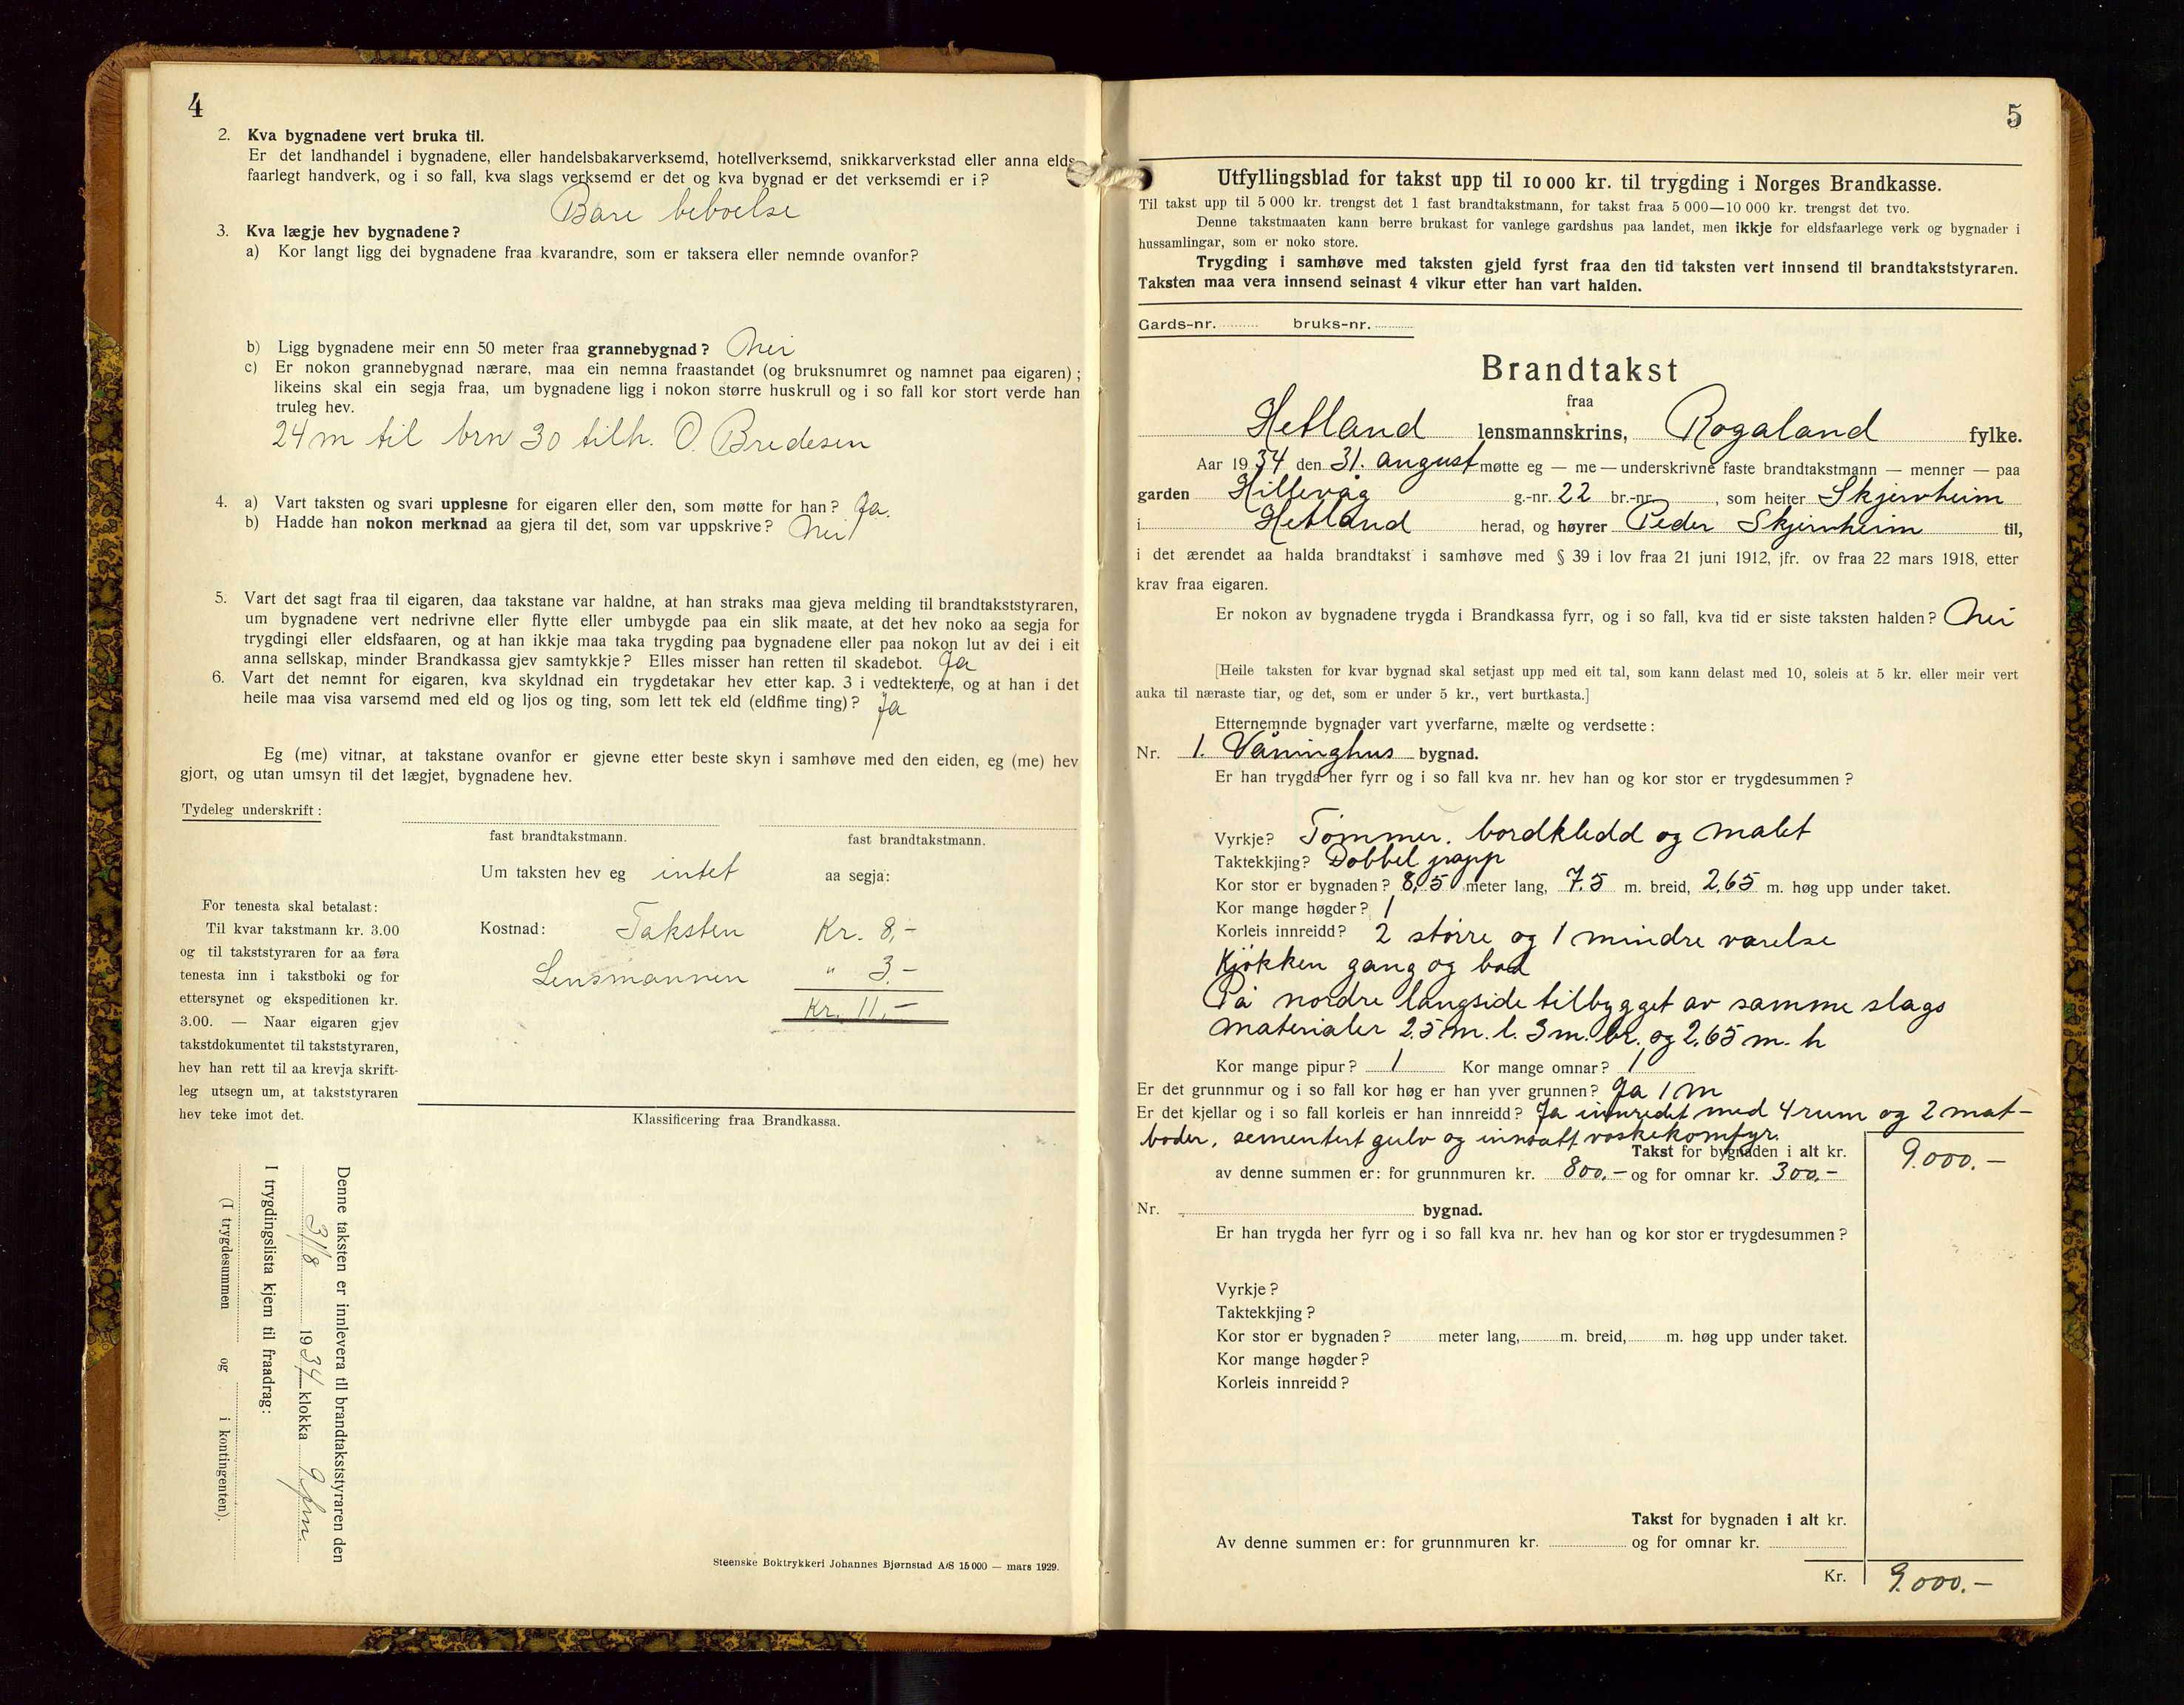 4
2. Kva bygnadene vert bruka til.
Er det landhandel i bygnadene, eller handelsbakarverksemd, hotellverksemd, snikkarverkstad eller anna elds-
faarlegt handverk, og i so fall, kva slags verksemd er det og kva bygnad er det verksemdi er i?
Bare beboelse
3. Kva lægje hev bygnadene?
a) Kor langt ligg dei bygnadene fraa kvarandre, som er taksera eller nemnde ovanfor?
b) Ligg bygnadene meir enn 50 meter fraa grannebygnad? Nei
c) Er nokon grannebygnad nærare, maa ein nemna fraastandet (og bruksnumret og namnet paa eigaren);
likeins skal ein segja fraa, um bygnadene ligg i nokon større huskrull og i so fall kor stort verde han
truleg hev.
24 m til brn 30 tilh. O. Bredesen
4. a) Vart taksten og svari upplesne for eigaren eller den, som møtte for han? Ja.
b) Hadde han nokon merknad aa gjera til det, som var uppskrive? Nei
5. Vart det sagt fraa til eigaren, daa takstane var haldne, at han straks maa gjeva melding til brandtakststyraren,
um bygnadene vert nedrivne eller flytte eller umbygde paa ein slik maate, at det hev noko aa segja for
trygdingi eller eldsfaaren, og at han ikkje maa taka trygding paa bygnadene eller paa nokon lut av dei i eit
anna sellskap, minder Brandkassa gjev samtykkje? Elles misser han retten til skadebot. Ja
6. Vart det nemnt for eigaren, kva skyldnad ein trygdetakar hev etter kap. 3 i vedtektene, og at han i det
heile maa visa varsemd med eld og ljos og ting, som lett tek eld (eldfime ting)? Ja
Eg (me) vitnar, at takstane ovanfor er gjevne etter beste skyn i samhøve med den eiden, eg (me) hev
gjort, og utan umsyn til det lægjet, bygnadene hev.
Tydeleg underskrift:
fast brandtakstmann. fast brandtakstmann.
Um taksten hev eg intet aa segja:
For tenesta skal betalast:
Til kvar takstmann kr. 3.00
og til takststyraren for aa føra
tenesta inn i takstboki og for
ettersynet og ekspeditionen kr.
3.00. — Naar eigaren gjev
takstdokumentet til takststyraren,
hev han rett til aa krevja skrift-
leg utsegn um, at takststyraren
hev teke imot det.
Kostnad: Taksten Kr. 8,-
Lensmannen " 3.-
Kr. 11,-
Klassificering fraa Brandkassa.
Denne taksten er innlevera til brandtakststyraren den
31/8 1934 klokka 9 fm.
I trygdingslista kjem til fraadrag:
(I trygdesummen og i kontingenten).
Steenske Boktrykkeri Johannes Bjørnstad A/S 15 000 — mars 1929.
5
Utfyllingsblad for takst upp til 10 000 kr. til trygding i Norges Brandkasse.
Til takst upp til 5 000 kr. trengst det 1 fast brandtakstmann, for takst fraa 5 000—10 000 kr. trengst det tvo.
Denne takstmaaten kann berre brukast for vanlege gardshus paa landet, men ikkje for eldsfaarlege verk og bygnader i
hussamlingar, som er noko store.
Trygding i samhøve med taksten gjeld fyrst fraa den tid taksten vert innsend til brandtakststyraren.
Taksten maa vera innsend seinast 4 vikur etter han vart halden.
Gards-nr. bruks-nr.
Brandtakst
fraa
Hetland lensmannskrins, Rogaland fylke.
Aar 1934 den 31. august møtte eg — me — underskrivne faste brandtakstmann — menner — paa
garden Hillevåg g.-nr. 22 br.-nr. , som heiter Skjernheim
i Hetland herad, og høyrer Peder Skjernheim til,
i det ærendet aa halda brandtakst i samhøve med § 39 i lov fraa 21 juni 1912, jfr. ov fraa 22 mars 1918, etter
krav fraa eigaren.
Er nokon av bygnadene trygda i Brandkassa fyrr, og i so fall, kva tid er siste taksten halden? Nei
[Heile taksten for kvar bygnad skal setjast upp med eit tal, som kann delast med 10, soleis at 5 kr. eller meir vert
auka til næraste tiar, og det, som er under 5 kr., vert burtkasta.]
Etternemnde bygnader vart yverfarne, mælte og verdsette:
Nr. 1. Våninghus bygnad.
Er han trygda her fyrr og i so fall kva nr. hev han og kor stor er trygdesummen?
Vyrkje? Tømmer, bordkledd og malet
Taktekkjing? Dobbel papp
Kor stor er bygnaden? 8,5 meter lang, 7.5 m. breid, 2,65 m. høg upp under taket.
Kor mange høgder? 1
Korleis innreidd? 2 større og 1 mindre værelse
Kjøkken gang og bad
På nordre langside tilbygget av samme slags
materialer 2,5 m. l. 3 m. br. og 2,65 m. h
Kor mange pipur? 1 Kor mange omnar? 1
Er det grunnmur og i so fall kor høg er han yver grunnen? Ja 1 m
Er det kjellar og i so fall korleis er han innreidd? Ja innredet med 4 rum og 2 mat-
boder, sementert gulv og innsatt vaskekomfyr.
Takst for bygnaden i alt kr. 9.000.-
av denne summen er: for grunnmuren kr. 800.- og for omnar kr. 300.-
Nr. bygnad.
Er han trygda her fyrr og i so fall kva nr. hev han og kor stor er trygdesummen?
Vyrkje?
Taktekkjing?
Kor stor er bygnaden? meter lang, m. breid, m. høg upp under taket.
Kor mange høgder?
Korleis innreidd?
Takst for bygnaden i alt kr.
Av denne summen er: for grunnmuren kr. og for omnar kr.
Kr. 9.000.-